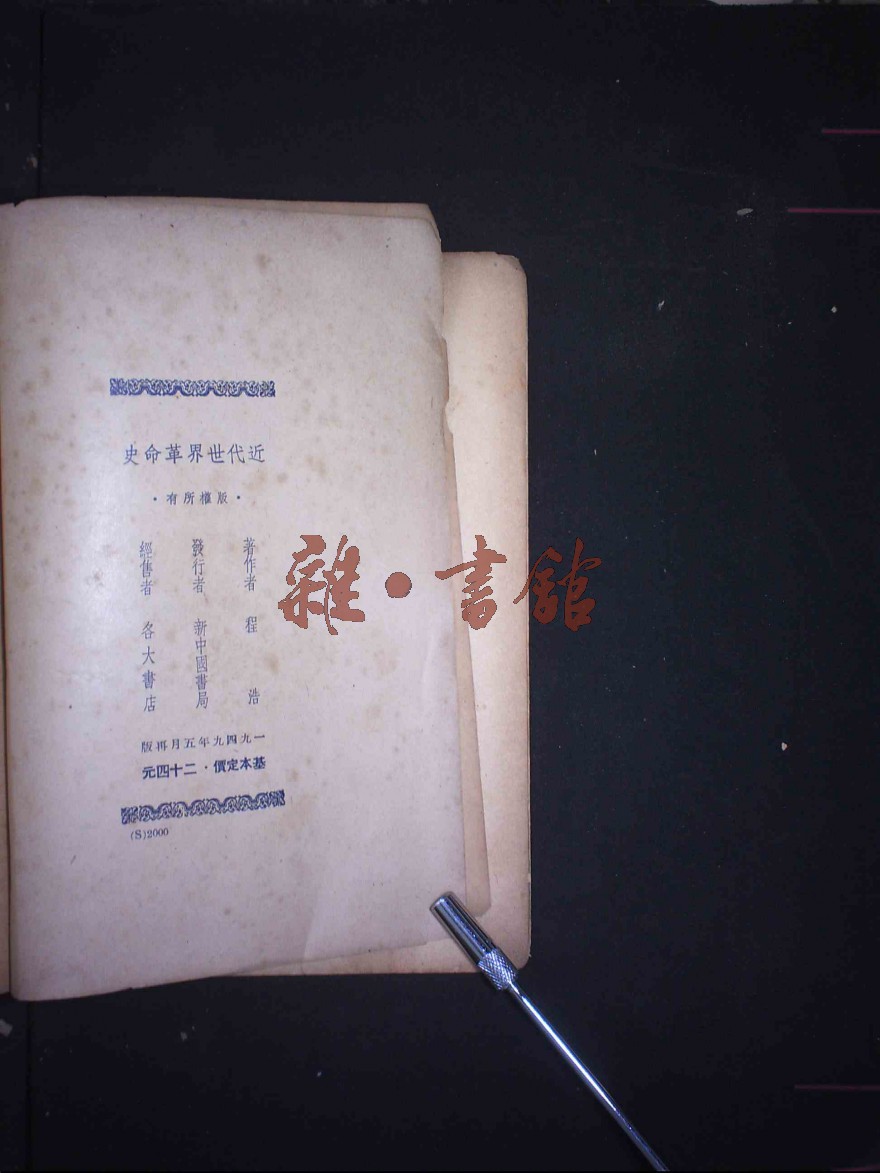 近代世界革命史
·版權所有·
著作者 程浩
發行者 新中國書局
經售者 各大書店
一九四九年五月再版
基本定價·二十四元
(S)2000
雜·書館